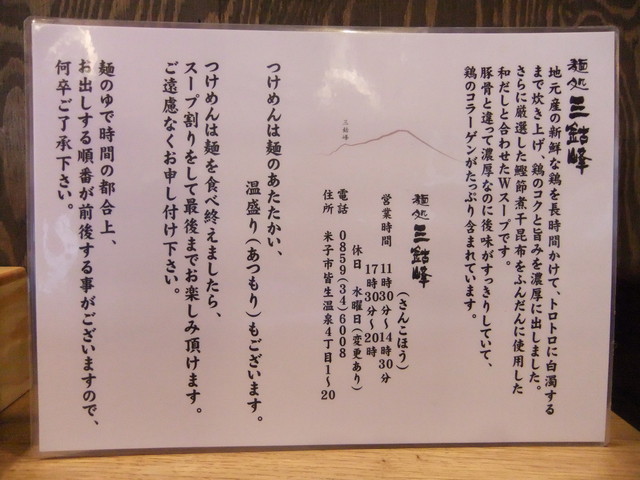 麺処 三鈷峰
地元産の新鮮な鶏を長時間かけて、トロトロに白濁する
まで炊き上げ、鶏のコクと旨みを濃厚に出しました。
さらに厳選した鰹節煮干昆布をふんだんに使用した
和だしと合わせたWスープです。
豚骨と違って濃厚なのに後味がすっきりしていて、
鶏のコラーゲンがたっぷり含まれています。
三鈷峰
麺処 三鈷峰
(さんこほう)
営業時間 11時30分〜14時30分
17時30分〜20時
休日 水曜日(変更あり)
電話 0859(34)6008
住所 米子市皆生温泉4丁目1〜20
つけめんは麺のあたたかい、
温盛り(あつもり)もございます。
つけめんは麺を食べ終えましたら、
スープ割りをして最後までお楽しみ頂けます。
ご遠慮なくお申し付け下さい。
麺のゆで時間の都合上、
お出しする順番が前後する事がございますので、
何卒ご了承下さい。